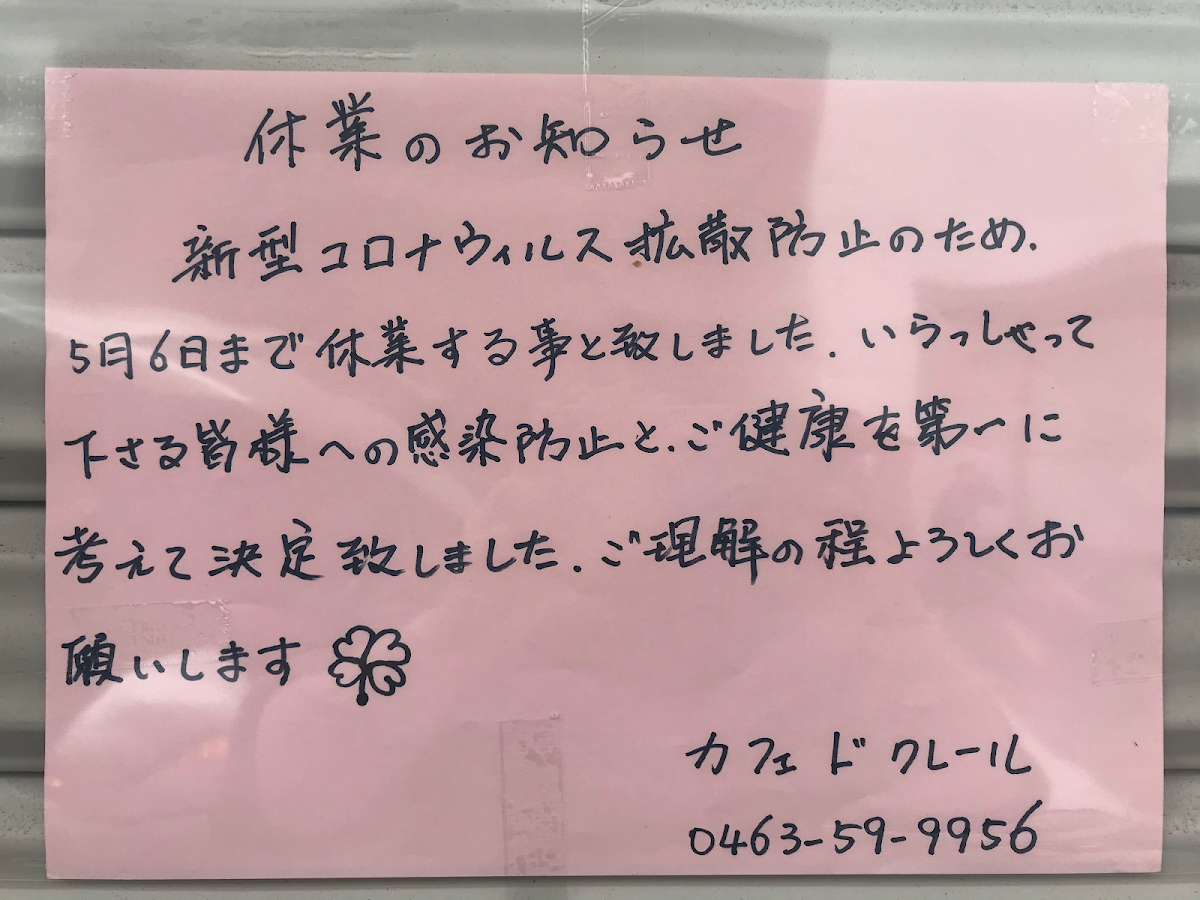 休業のお知らせ
新型コロナウィルス拡散防止のため.
5月6日まで休業する事と致しました. いらっしゃって
下さる皆様への感染防止と.ご健康を第一に
考えて決定致しました. ご理解の程よろしくお
願いします
カフェ ド クレール
0463-59-9956